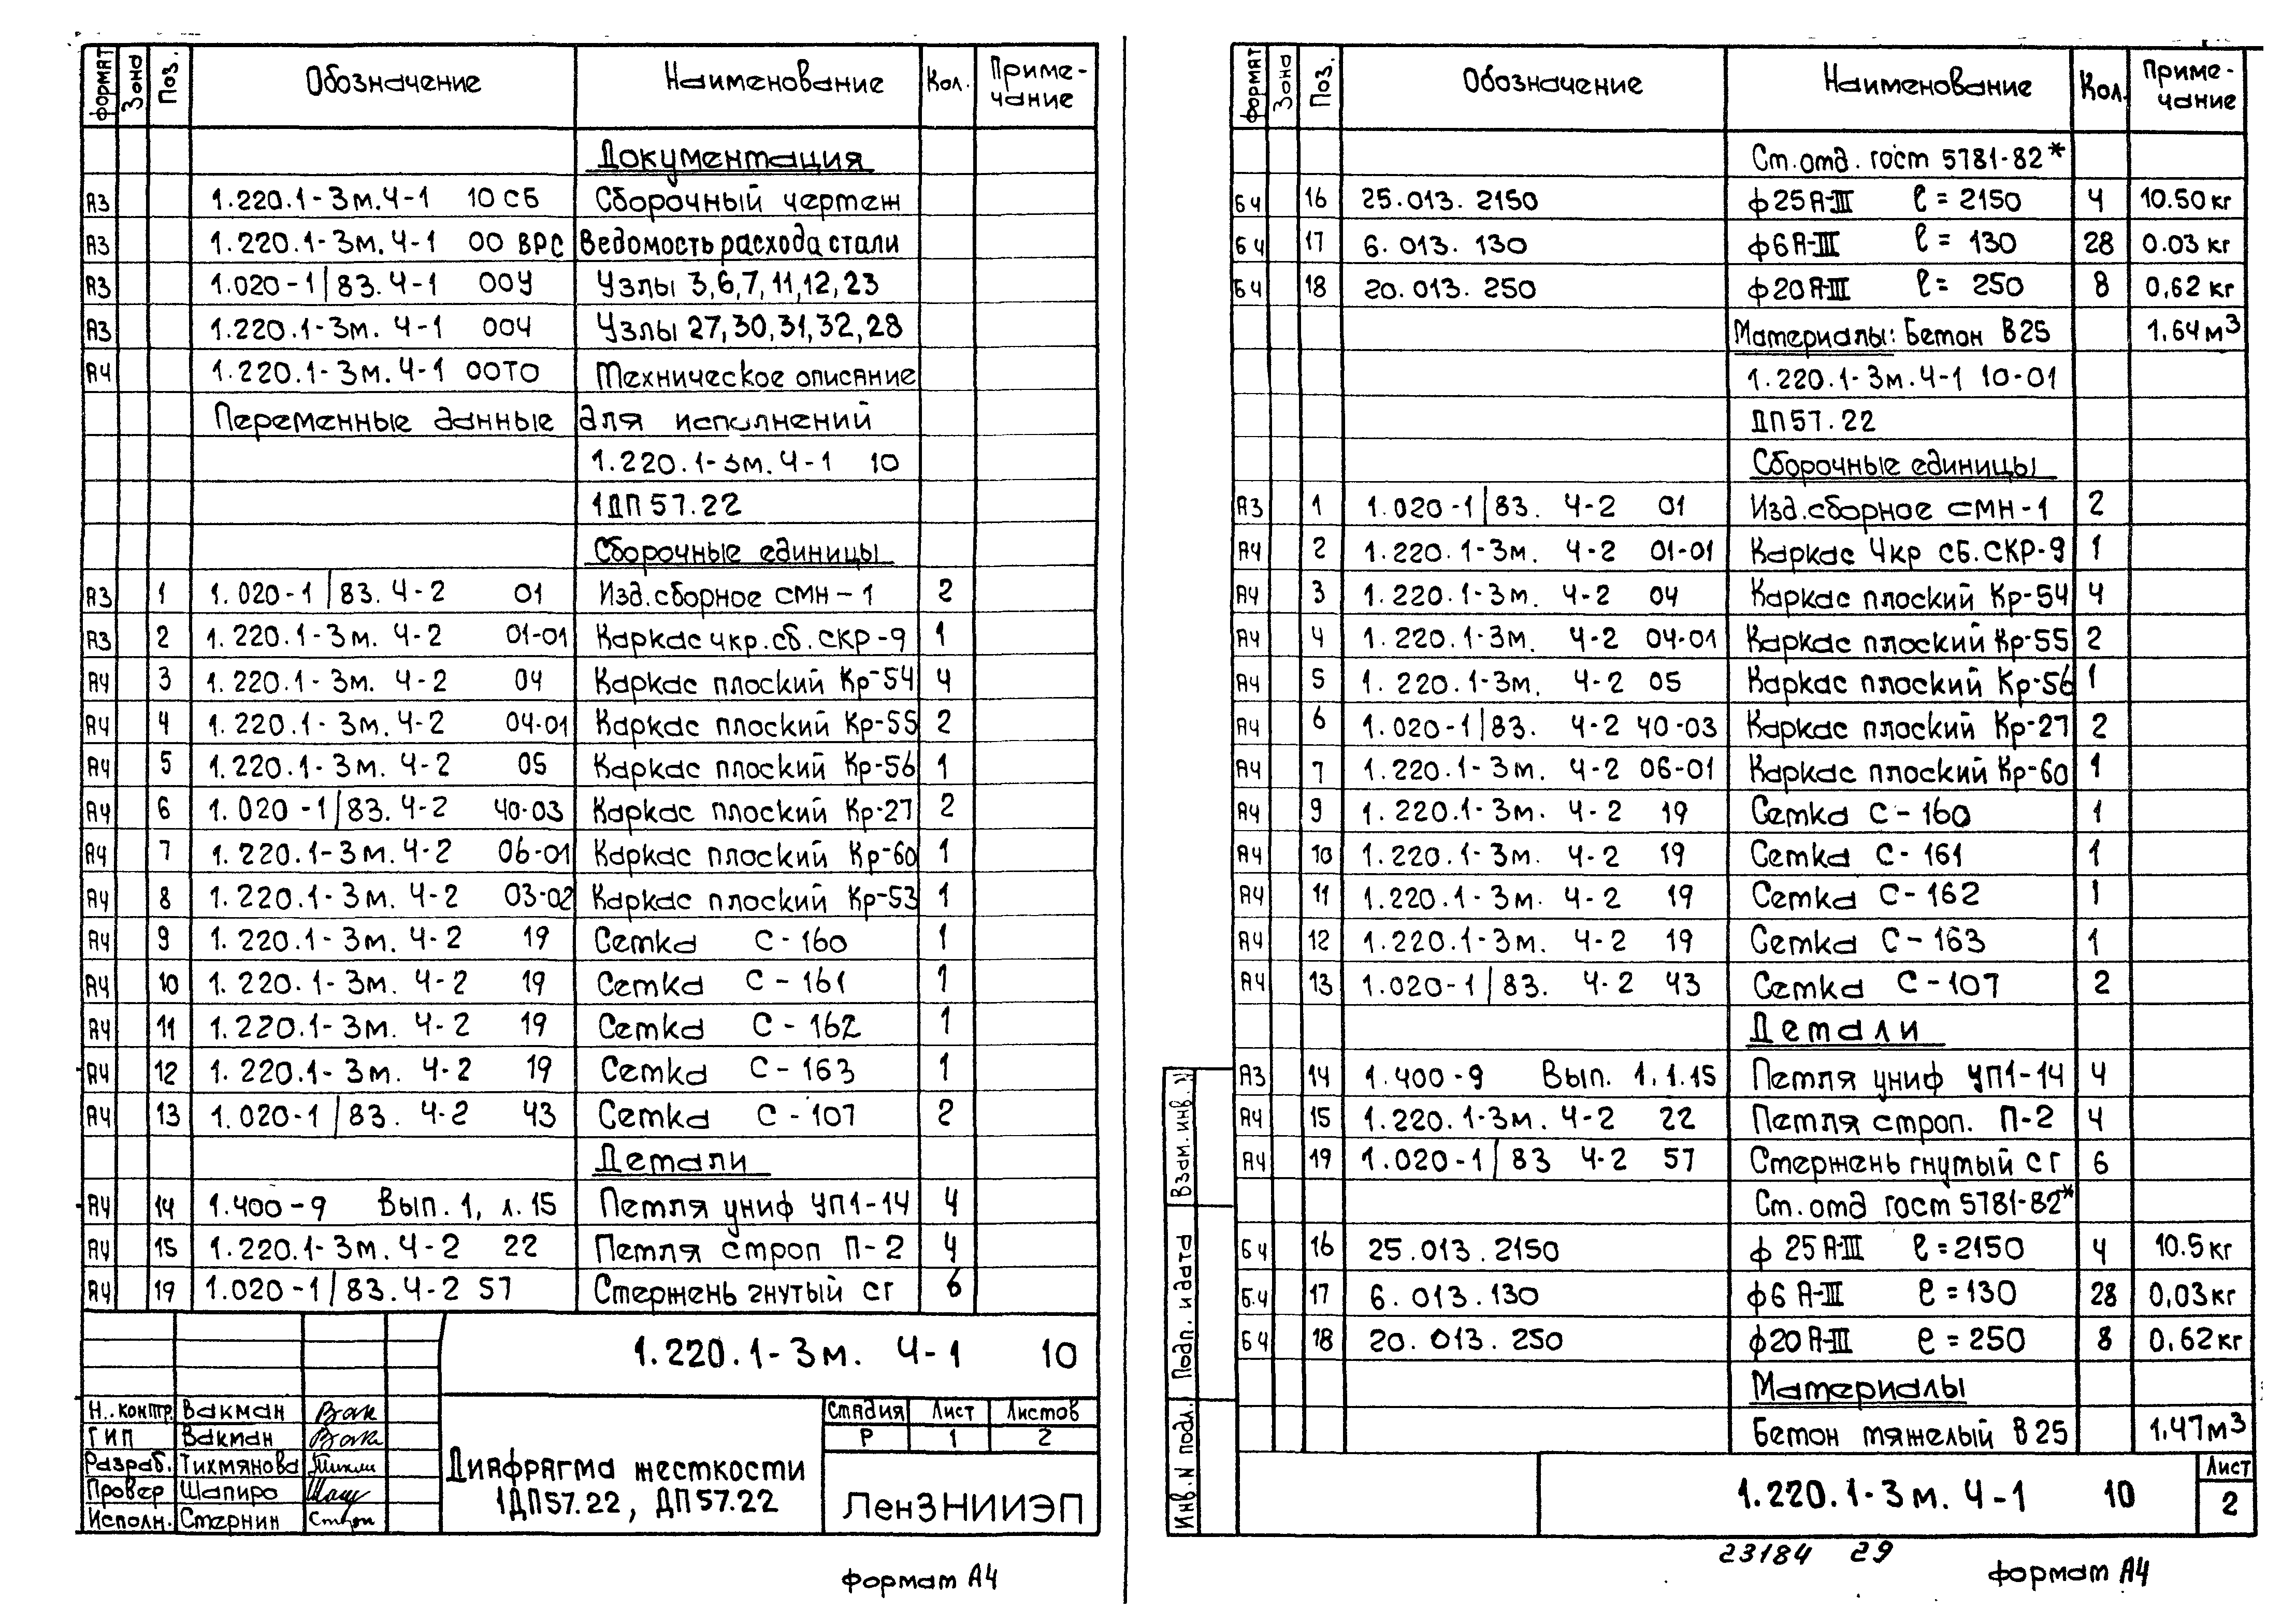 формат Зона Поз. Обозначение Наименование Кол. Приме-чание
Документация
А3 1.220.1-3м.Ч-1 10 СБ Сборочный чертеж
А3 1.220.1-3м.Ч-1 00 ВРС Ведомость расхода стали
А3 1.020-1/83.Ч-1 00У Узлы 3,6,7,11,12,23
А3 1.220.1-3м.Ч-1 00У Узлы 27,30,31,32,28
А4 1.220.1-3м.Ч-1 00ТО Техническое описание
Переменные данные для исполнений
1.220.1-3м.Ч-1 10
1ДП57.22
Сборочные единицы
А3 1 1.020-1/83.Ч-2 01 Изд.сборное СМН-1 2
А3 2 1.220.1-3м.Ч-2 01-01 Каркас чкр.сб.СКР-9 1
А4 3 1.220.1-3м.Ч-2 04 Каркас плоский Кр-54 4
А4 4 1.220.1-3м.Ч-2 04-01 Каркас плоский Кр-55 2
А4 5 1.220.1-3м.Ч-2 05 Каркас плоский Кр-56 1
А4 6 1.020-1/83.Ч-2 40-03 Каркас плоский Кр-27 2
А4 7 1.220.1-3м.Ч-2 06-01 Каркас плоский Кр-60 1
А4 8 1.220.1-3м.Ч-2 03-02 Каркас плоский Кр-53 1
А4 9 1.220.1-3м.Ч-2 19 Сетка С-160 1
А4 10 1.220.1-3м.Ч-2 19 Сетка С-161 1
А4 11 1.220.1-3м.Ч-2 19 Сетка С-162 1
А4 12 1.220.1-3м.Ч-2 19 Сетка С-163 1
А4 13 1.020-1/83.Ч-2 43 Сетка С-107 2
Детали
А4 14 1.400-9 Вып.1, л.15 Петля униф УП1-14 4
А4 15 1.220.1-3м.Ч-2 22 Петля строп П-2 4
А4 19 1.020-1/83.Ч-2 57 Стержень гнутый СГ 6
1.220.1-3м. Ч-1 10
Н.контр. Вакман Вак
ГИП Вакман Вак
Разраб. Тихмянова
Провер Шапиро
Исполн. Стернин
Диафрагма жесткости
1ДП57.22, ДП57.22
Стадия Лист Листов
Р 1 2
ЛенЗНИИЭП
формат А4
формат Зона Поз. Обозначение Наименование Кол. Приме-чание
Ст.отд.гост 5781-82*
БЧ 16 25.013.2150 ф25А-III ℓ=2150 4 10.50кг
БЧ 17 6.013.130 ф6А-III ℓ=130 28 0.03 кг
БЧ 18 20.013.250 ф20А-III ℓ=250 8 0,62 кг
Материалы: Бетон В25 1.64м³
1.220.1-3м.Ч-1 10-01
ДП57.22
Сборочные единицы
А3 1 1.020-1/83. Ч-2 01 Изд.сборное СМН-1 2
А4 2 1.220.1-3м. Ч-2 01-01 Каркас Чкр сб.СКР-9 1
А4 3 1.220.1-3м. Ч-2 04 Каркас плоский Кр-54 4
А4 4 1.220.1-3м. Ч-2 04-01 Каркас плоский Кр-55 2
А4 5 1.220.1-3м. Ч-2 05 Каркас плоский Кр-56 1
А4 6 1.020-1/83. Ч-2 40-03 Каркас плоский Кр-27 2
А4 7 1.220.1-3м. Ч-2 06-01 Каркас плоский Кр-60 1
А4 9 1.220.1-3м. Ч-2 19 Сетка С-160 1
А4 10 1.220.1-3м. Ч-2 19 Сетка С-161 1
А4 11 1.220.1-3м. Ч-2 19 Сетка С-162 1
А4 12 1.220.1-3м. Ч-2 19 Сетка С-163 1
А4 13 1.020-1/83. Ч-2 43 Сетка С-107 2
Детали
А3 14 1.400-9 Вып. 1.1.15 Петля униф УП1-14 4
А4 15 1.220.1-3м. Ч-2 22 Петля строп. П-2 4
А4 19 1.020-1/83 Ч-2 57 Стержень гнутый СГ 6
Ст.отд гост 5781-82*
БЧ 16 25.013.2150 ф 25А-III ℓ=2150 4 10.5кг
Б.Ч 17 6.013.130 ф6 А-III ℓ=130 28 0,03кг
БЧ 18 20.013.250 ф20А-III ℓ=250 8 0,62кг
Материалы
Бетон тяжелый В25 1,47м³
Взам.инв.N
Подп. и дата
Инв.N подл.
1.220.1-3м. Ч-1 10
Лист
2
23184 29
формат А4